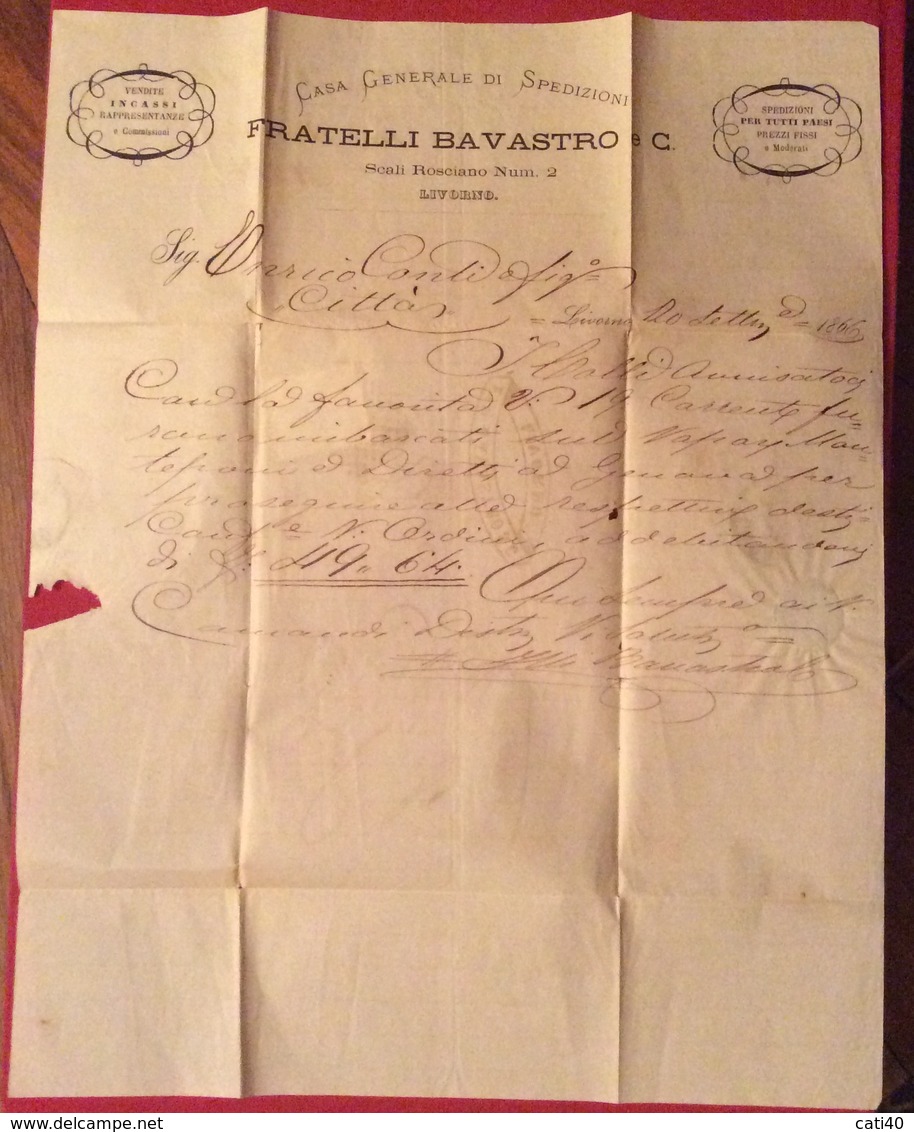 VENDITE
INCASSI
RAPPRESENTANZE
e Commissioni
CASA GENERALE DI SPEDIZIONI
FRATELLI BAVASTRO e C.
Scali Rosciano Num. 2
LIVORNO.
SPEDIZIONI
PER TUTTI PAESI
PREZZI FISSI
e Moderati
Sig. Enrico Conti e fig.o
Città
Livorno 20 1866
Colla favorita V. 19 Corrente fu-
rono imbarcati sul Vapor Mon-
teponi e Diretti a Genova per
proseguire alle respettive
V. Ordini, addebitandovi
di 49 64.
Comandi V. 
Flli Bavastro
www.delcampe.net
cati40